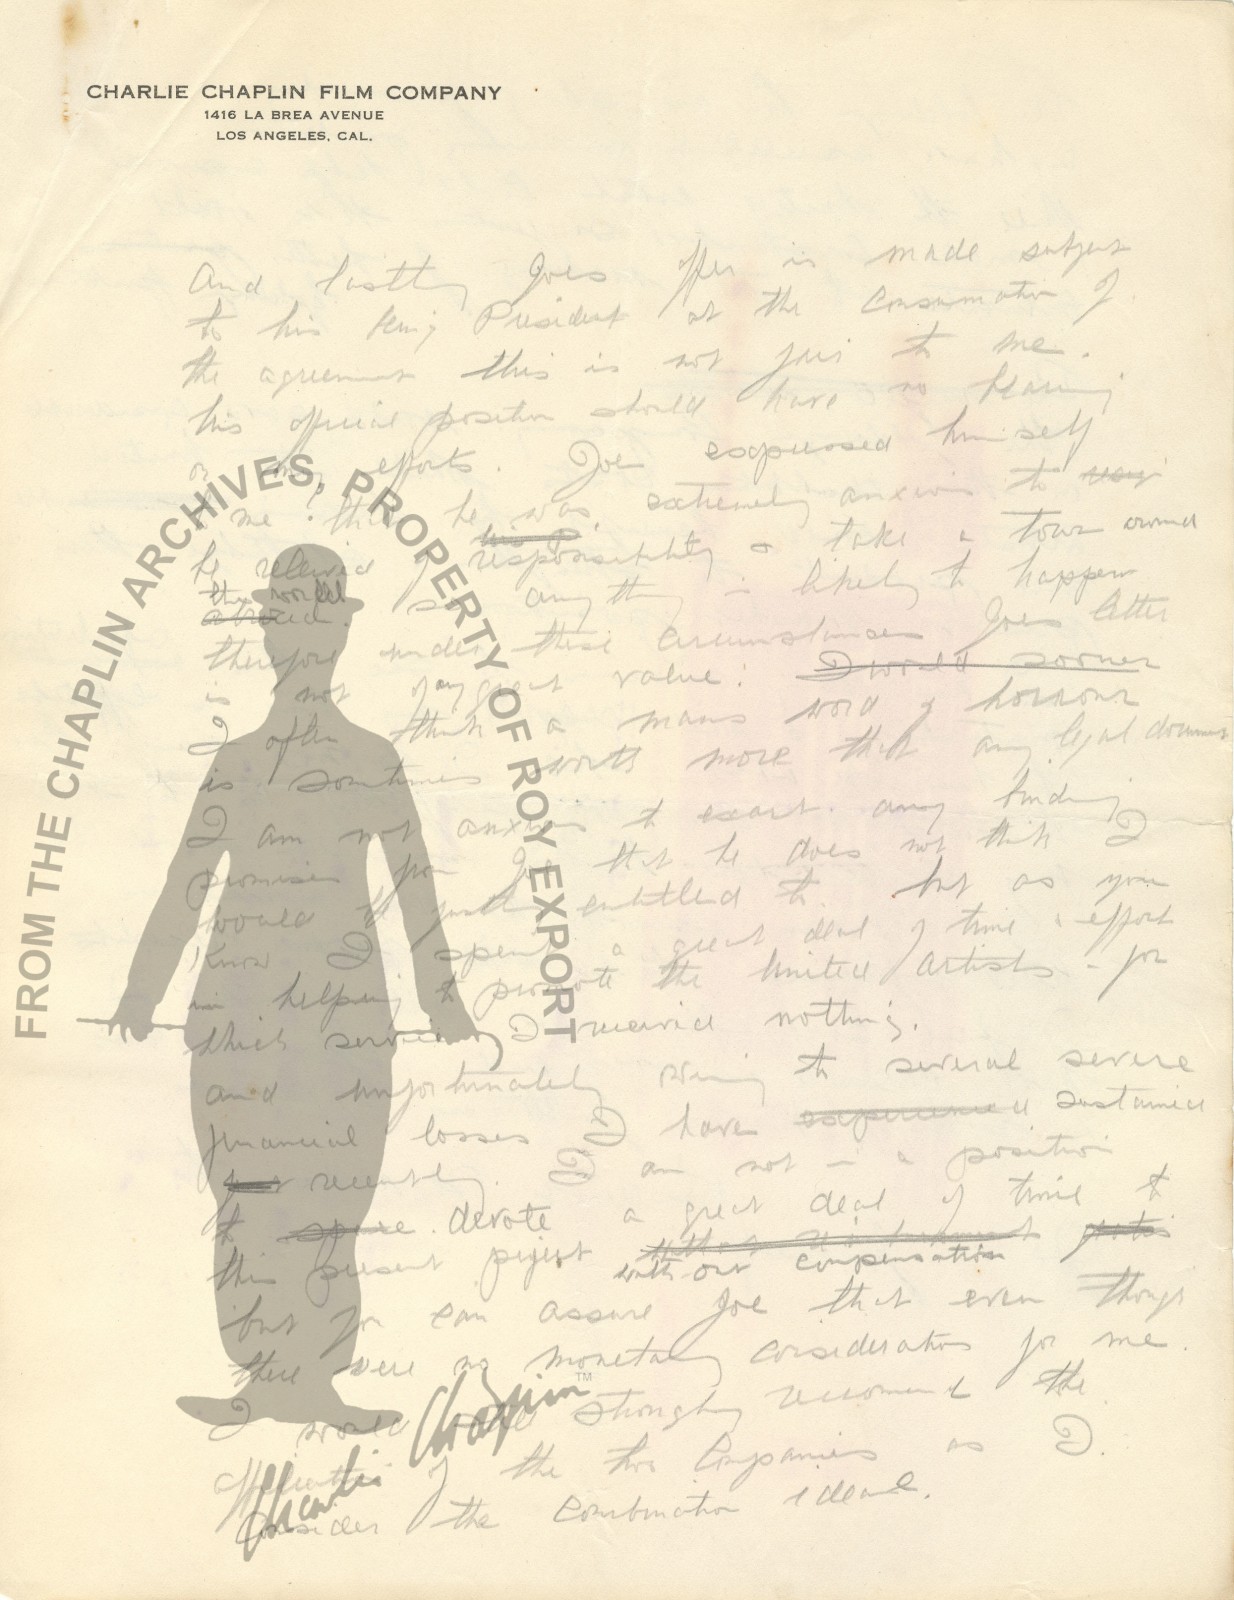 CHARLIE CHAPLIN FILM COMPANY
1416 LA BREA AVENUE
LOS ANGELES, CAL.
And lastly Joes offer is made subject
to his being President at the consumation of
the agreement this is not fair to me.
his official position should have no bearing
on my efforts. Joe expressed himself
to me that he was extremely anxious to
be relieved of responsibility & take a tour around
the world so anything is likely to happen
abroad.
therefore under these circumstances Joes letter
is not of any great value. I would sooner
I often think a mans word of honour
is sometimes worth more that any legal document
I am not anxious to exact any binding
promises from Joe that he does not think I
would be justly entitled to. but as you
know I spent a great deal of time & effort
in helping to promote the United Artists - for
which services I received nothing.
and unfortunately owing to several severe
financial losses I have experienced sustained
recently. I am not in a position
to spare devote a great deal of time to
this present project
without compensation
but you can assure Joe that even though
there were no monetary consideration for me.
I would strongly recomend the
of the two Companies as I
consider the combination ideal.
Charlie Chaplin
TM
FROM THE CHAPLIN ARCHIVES, PROPERTY OF ROY EXPORT